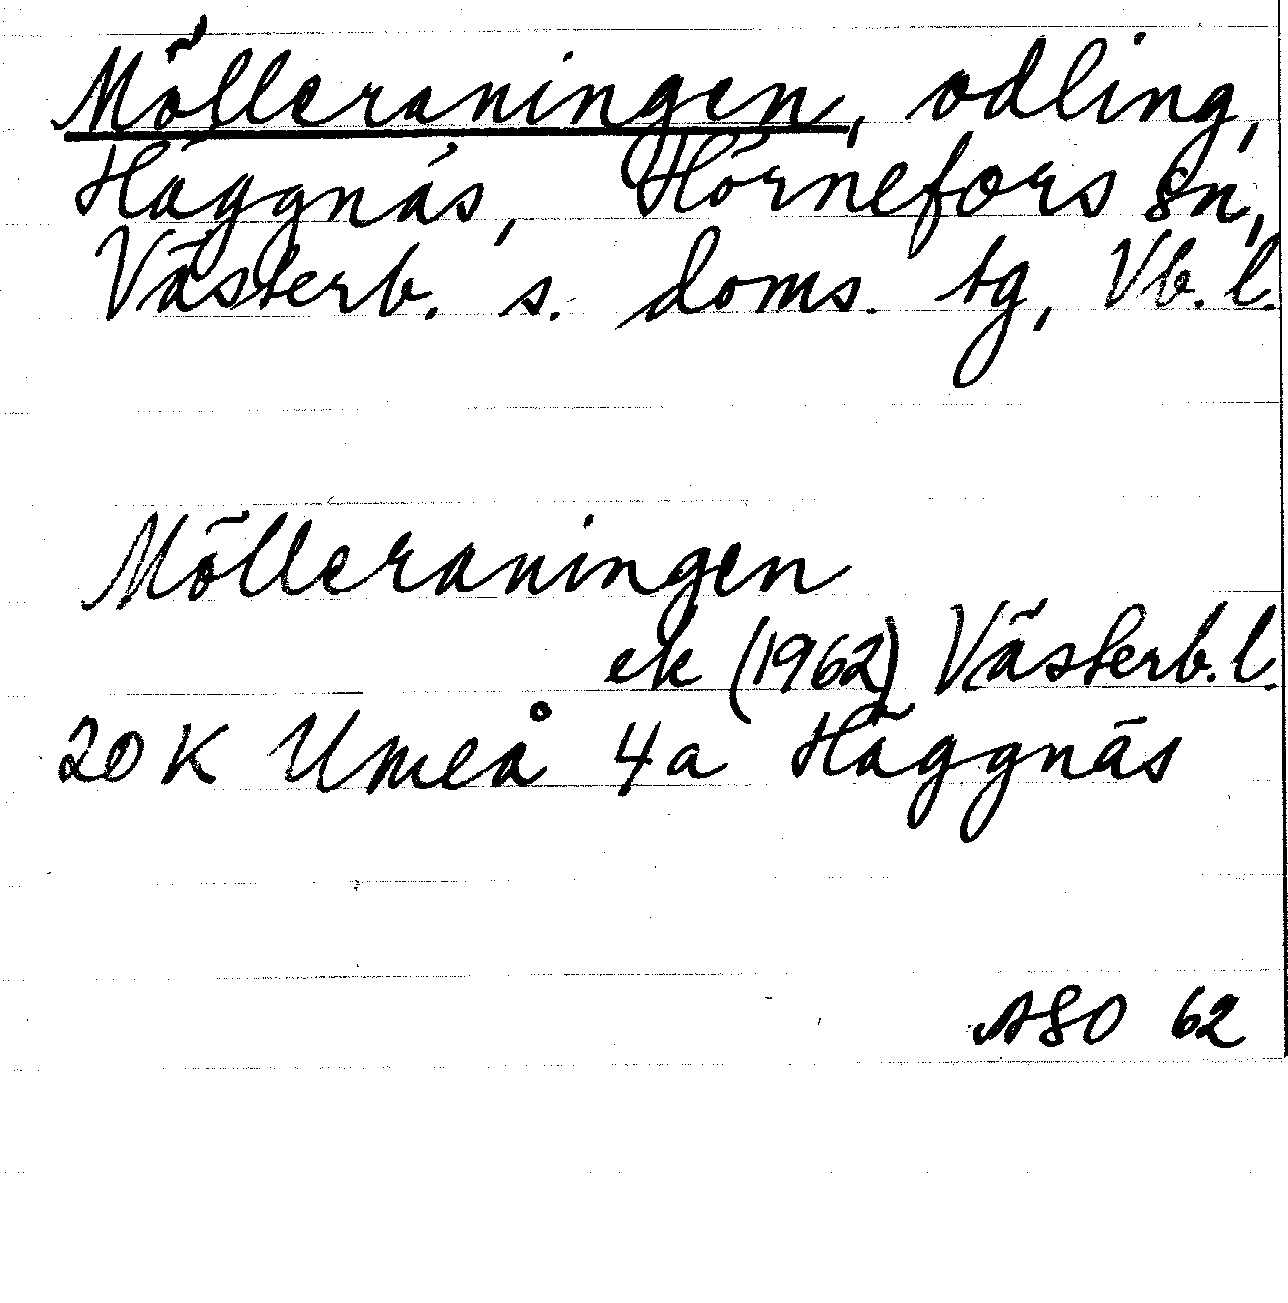 Mölleraningen, odling,
Häggnäs, Hörnefors sn,
Västerb. s. doms. tg, Vb. l.
Mölleraningen
ek (1962) Västerb. l.
20 K Umeå 4a Häggnäs
ASO 62